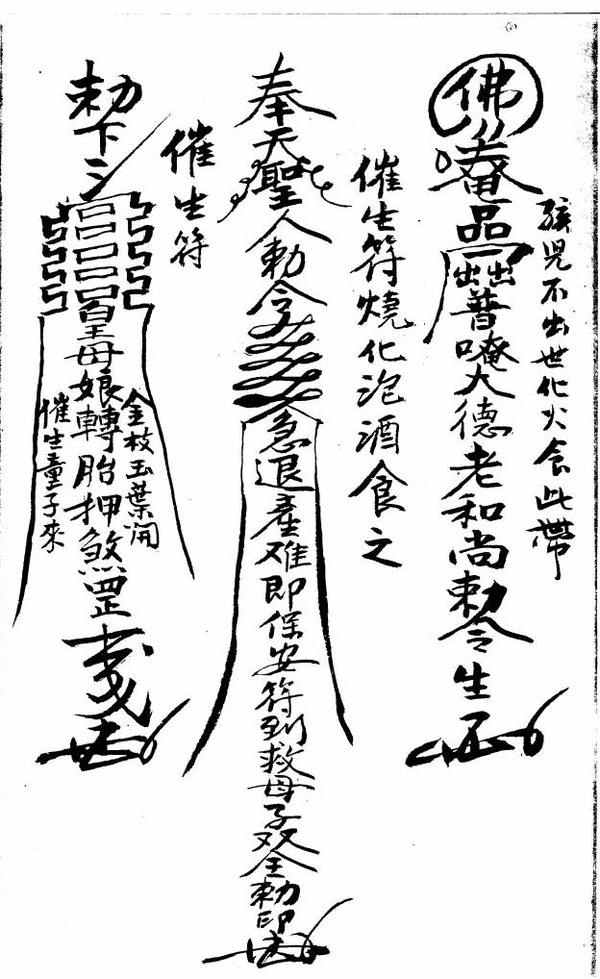 孩児不出世化火食此帶
佛 品 普唵大德老和尚勅令生
催生符燒化泡酒食之
奉天聖人勅令 急退產难即保安符到救母子双全勅印
催生符
勅下三 皇母娘轉胎押煞罡
金枝玉葉開
催生童子來